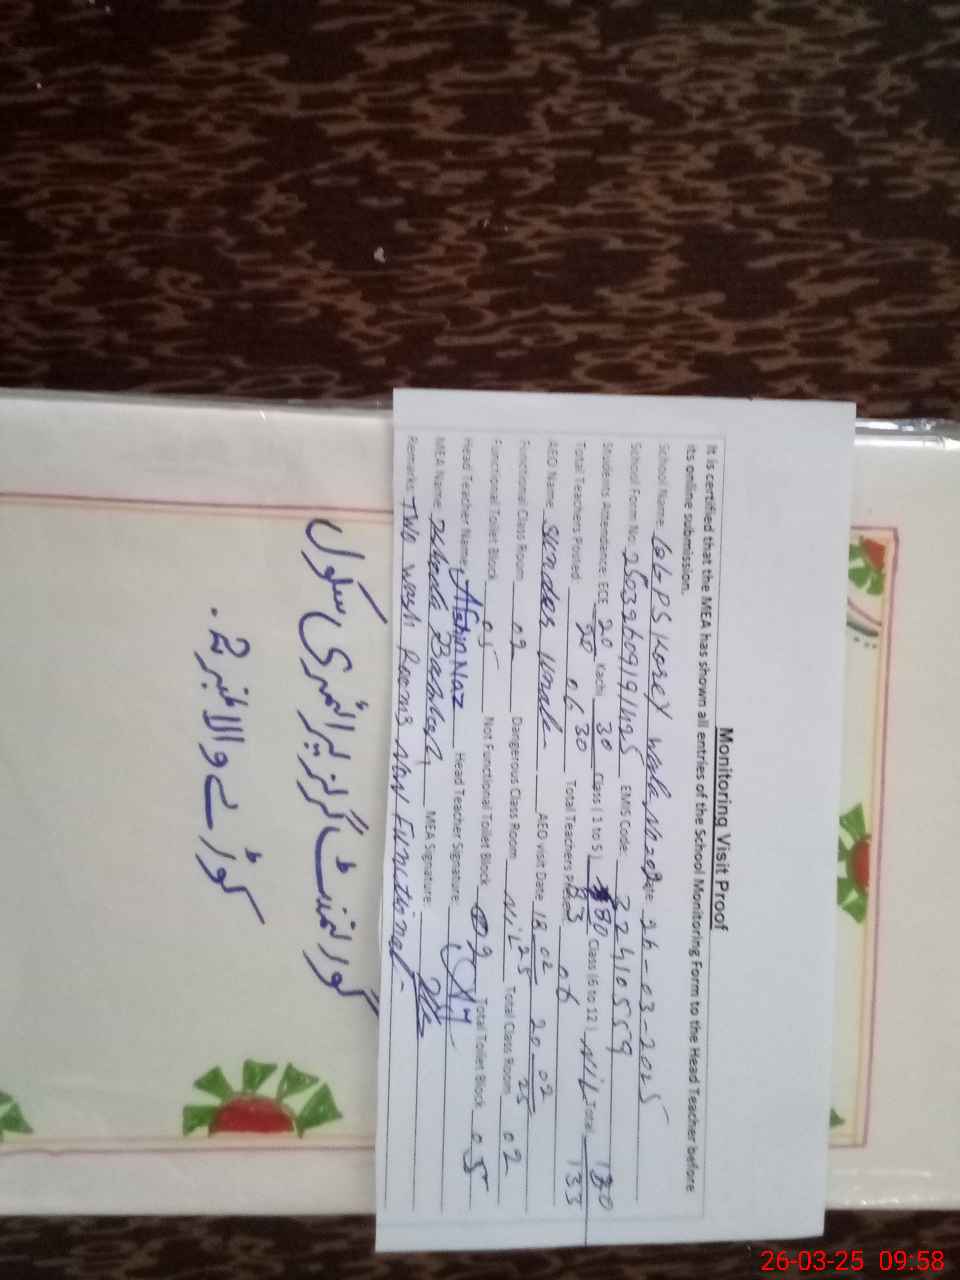 Monitoring Visit Proof
It is certified that the MEA has shown all entries of the School Monitoring Form to the Head Teacher before
its online submission.
School Name GGPS Korey Wala No=02 Date 26-03-2025
School Form No. EMIS Code: 32410559
Students Attendance ECE 20/20 Kachi 30/30 Class ( 1 to 5 ) 80/83 Class (6 to 12 ) NIL Total 130/133
Total Teachers Posted 06 Total Teachers 06
AEO Name Sundas AEO visit Date 18-02-25 20-02-25
Functional Class Room 02 Dangerous Class Room NiL Total Class Room 02
Functional Toilet Block 05 Not Functional Toilet Block 02 Total Toilet Block 05
Head Teacher Name: Afshin Naz Head Teacher Signature:
MEA Name: MEA Signature:
Remarks: Two wash Rooms Non Functional-
گورنمنٹ گرلز پرائمری سکول
کوڑے والا نمبر 2.
26-03-25 09:58